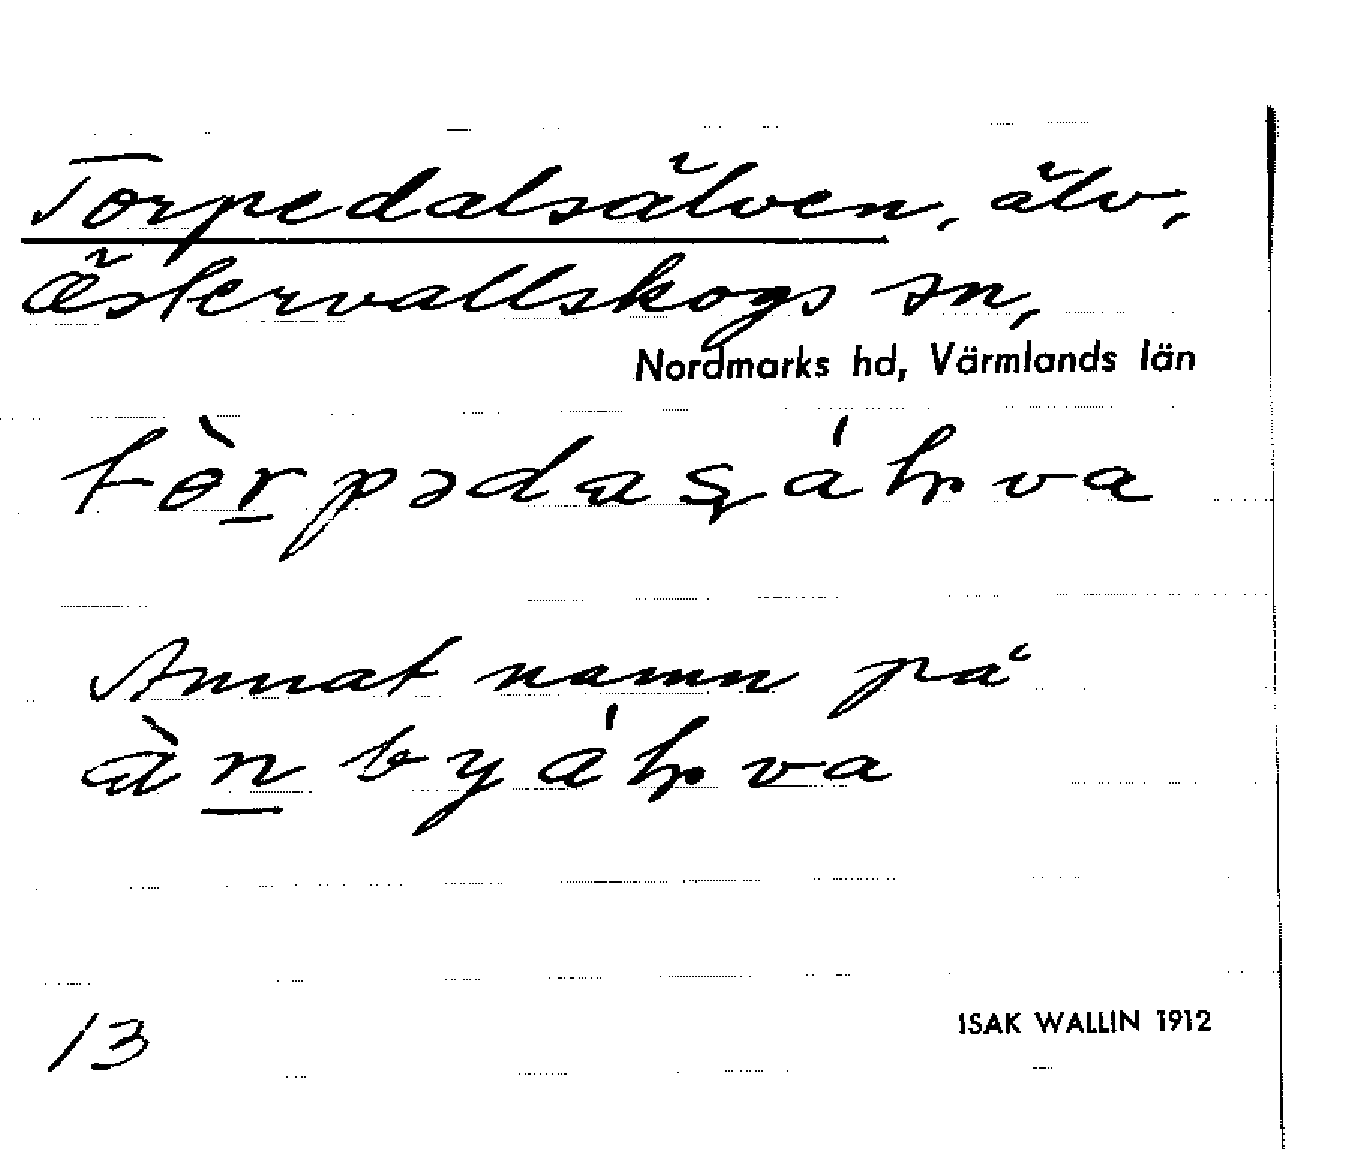 Torpedalsälven, älv,
Östervallskogs sn,
Nordmarks hd, Värmlands län
Annat namn på
13
ISAK WALLIN 1912